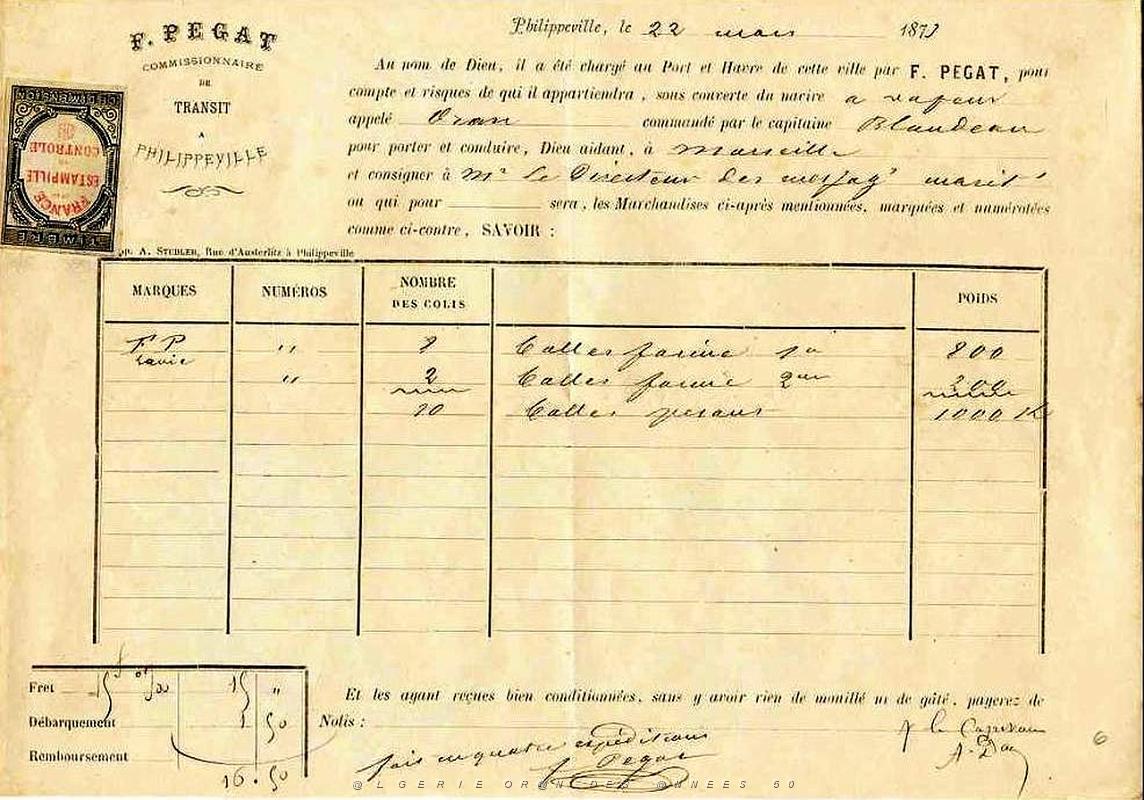 F. PEGAT
COMMISSIONNAIRE
DE
TRANSIT
A
PHILIPPEVILLE
TIMBRE
FRANCE
ESTAMPILLE
DE
CONTROLE
DIMENSION
Philippeville, le 22 mars 1873
Au nom de Dieu, il a été chargé au Port et Havre de cette ville par F. PEGAT, pour
compte et risques de qui il appartiendra, sous couverte du navire a vapeur
appelé Oran commandé par le capitaine Blandeau
pour porter et conduire, Dieu aidant, à Marseille
et consigner à Mr Le Directeur des messagies marit
ou qui pour sera, les Marchandises ci-après mentionnées, marquées et numérotées
comme ci-contre, SAVOIR :
A. STUBLER, Rue d'Austerlitz à Philippeville
MARQUES NUMÉROS NOMBRE DES COLIS POIDS
F P " 8 Balles farine 1re 800
" 2 Balles farine 2me 200
10 Balles pesant 1000 K
Fret 15 "
Débarquement 1 50
Remboursement
16.50
Et les ayant reçues bien conditionnées, sans y avoir rien de mouillé ni de gâté, payerez de
Nolis :
fait en quatre expéditions
F Pegat
Le Capitaine
6
@LGERIE ORAN DES @NNEES 50